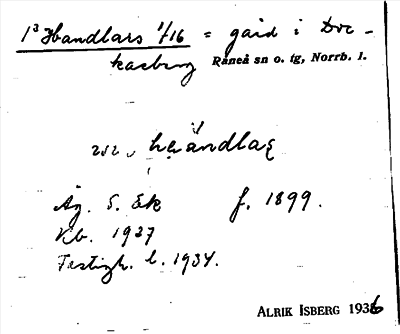 1³ Handlars 1/16 = gård i Doc-
kasberg Råneå sn o. tg, Norrb. l.
Äg. S. Ek f. 1899.
Kb. 1937
Fastigh. l. 1934.
ALRIK ISBERG 1936